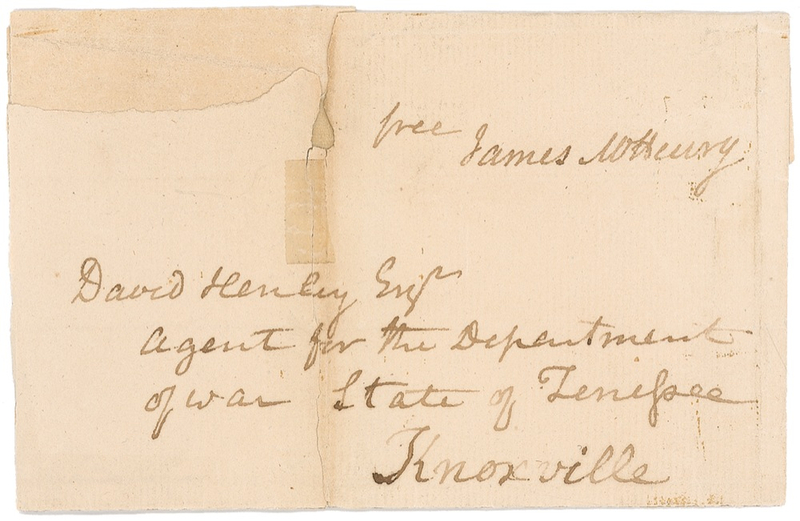 free James McHenry
David Henley Esqr
agent for the Department
of war State of Tenessee
Knoxville